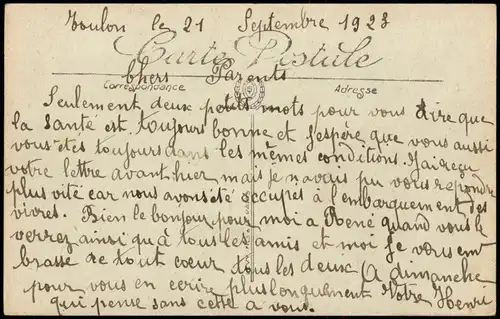 Toulon le 21 Septembre 1923
Carte Postale
Chers Parents
Correspondance Adresse
Seulement deux petits mots pour vous dire que
la santé est toujours bonne et j'espère que vous aussi
vous êtes toujours dans les mêmes conditions. J'ai reçu
votre lettre avant hier mais je n'avais pu vous repondre
plus vite car nous avons été occupés à l'embarquement des
vivres. Bien le bonjour pour moi a René quand vous le
verrez ainsi qu'à tous les amis et moi je vous em
brasse de tout cœur tous les deux (A dimanche
pour vous en ecrire plus longuement Votre Henri
qui pense sans cette a vous.